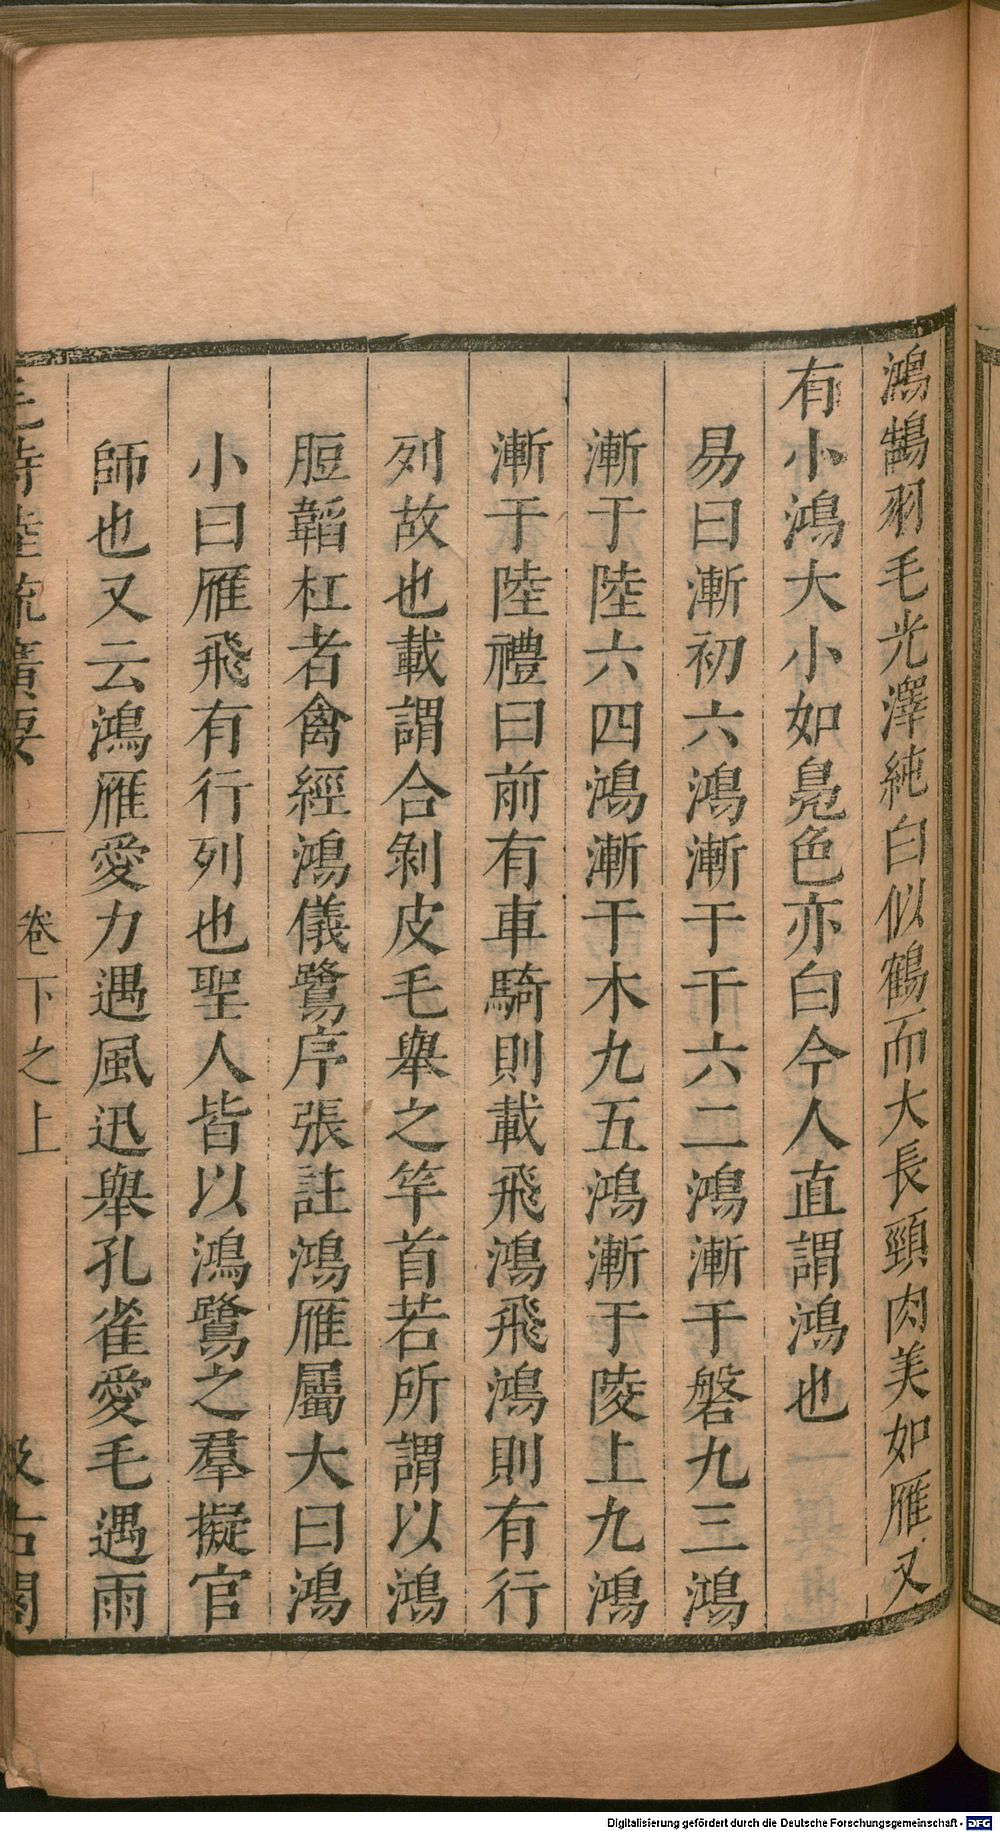 鴻鵠羽毛光澤純白似鶴而大長頸肉美如雁又
有小鴻大小如鳧色亦白今人直謂鴻也
易曰漸初六鴻漸于干六二鴻漸于磐九三鴻
漸于陸六四鴻漸于木九五鴻漸于陵上九鴻
漸于陸禮曰前有車騎則載飛鴻飛鴻則有行
列故也載謂合剝皮毛舉之竿首若所謂以鴻
脰韜杠者禽經鴻儀鷺序張註鴻雁屬大曰鴻
小曰雁飛有行列也聖人皆以鴻鷺之羣擬官
師也又云鴻雁愛力遇風迅舉孔雀愛毛遇雨
毛詩陸疏廣要 卷下之上 汲古閣
Digitalisierung gefördert durch die Deutsche Forschungsgemeinschaft - DFG